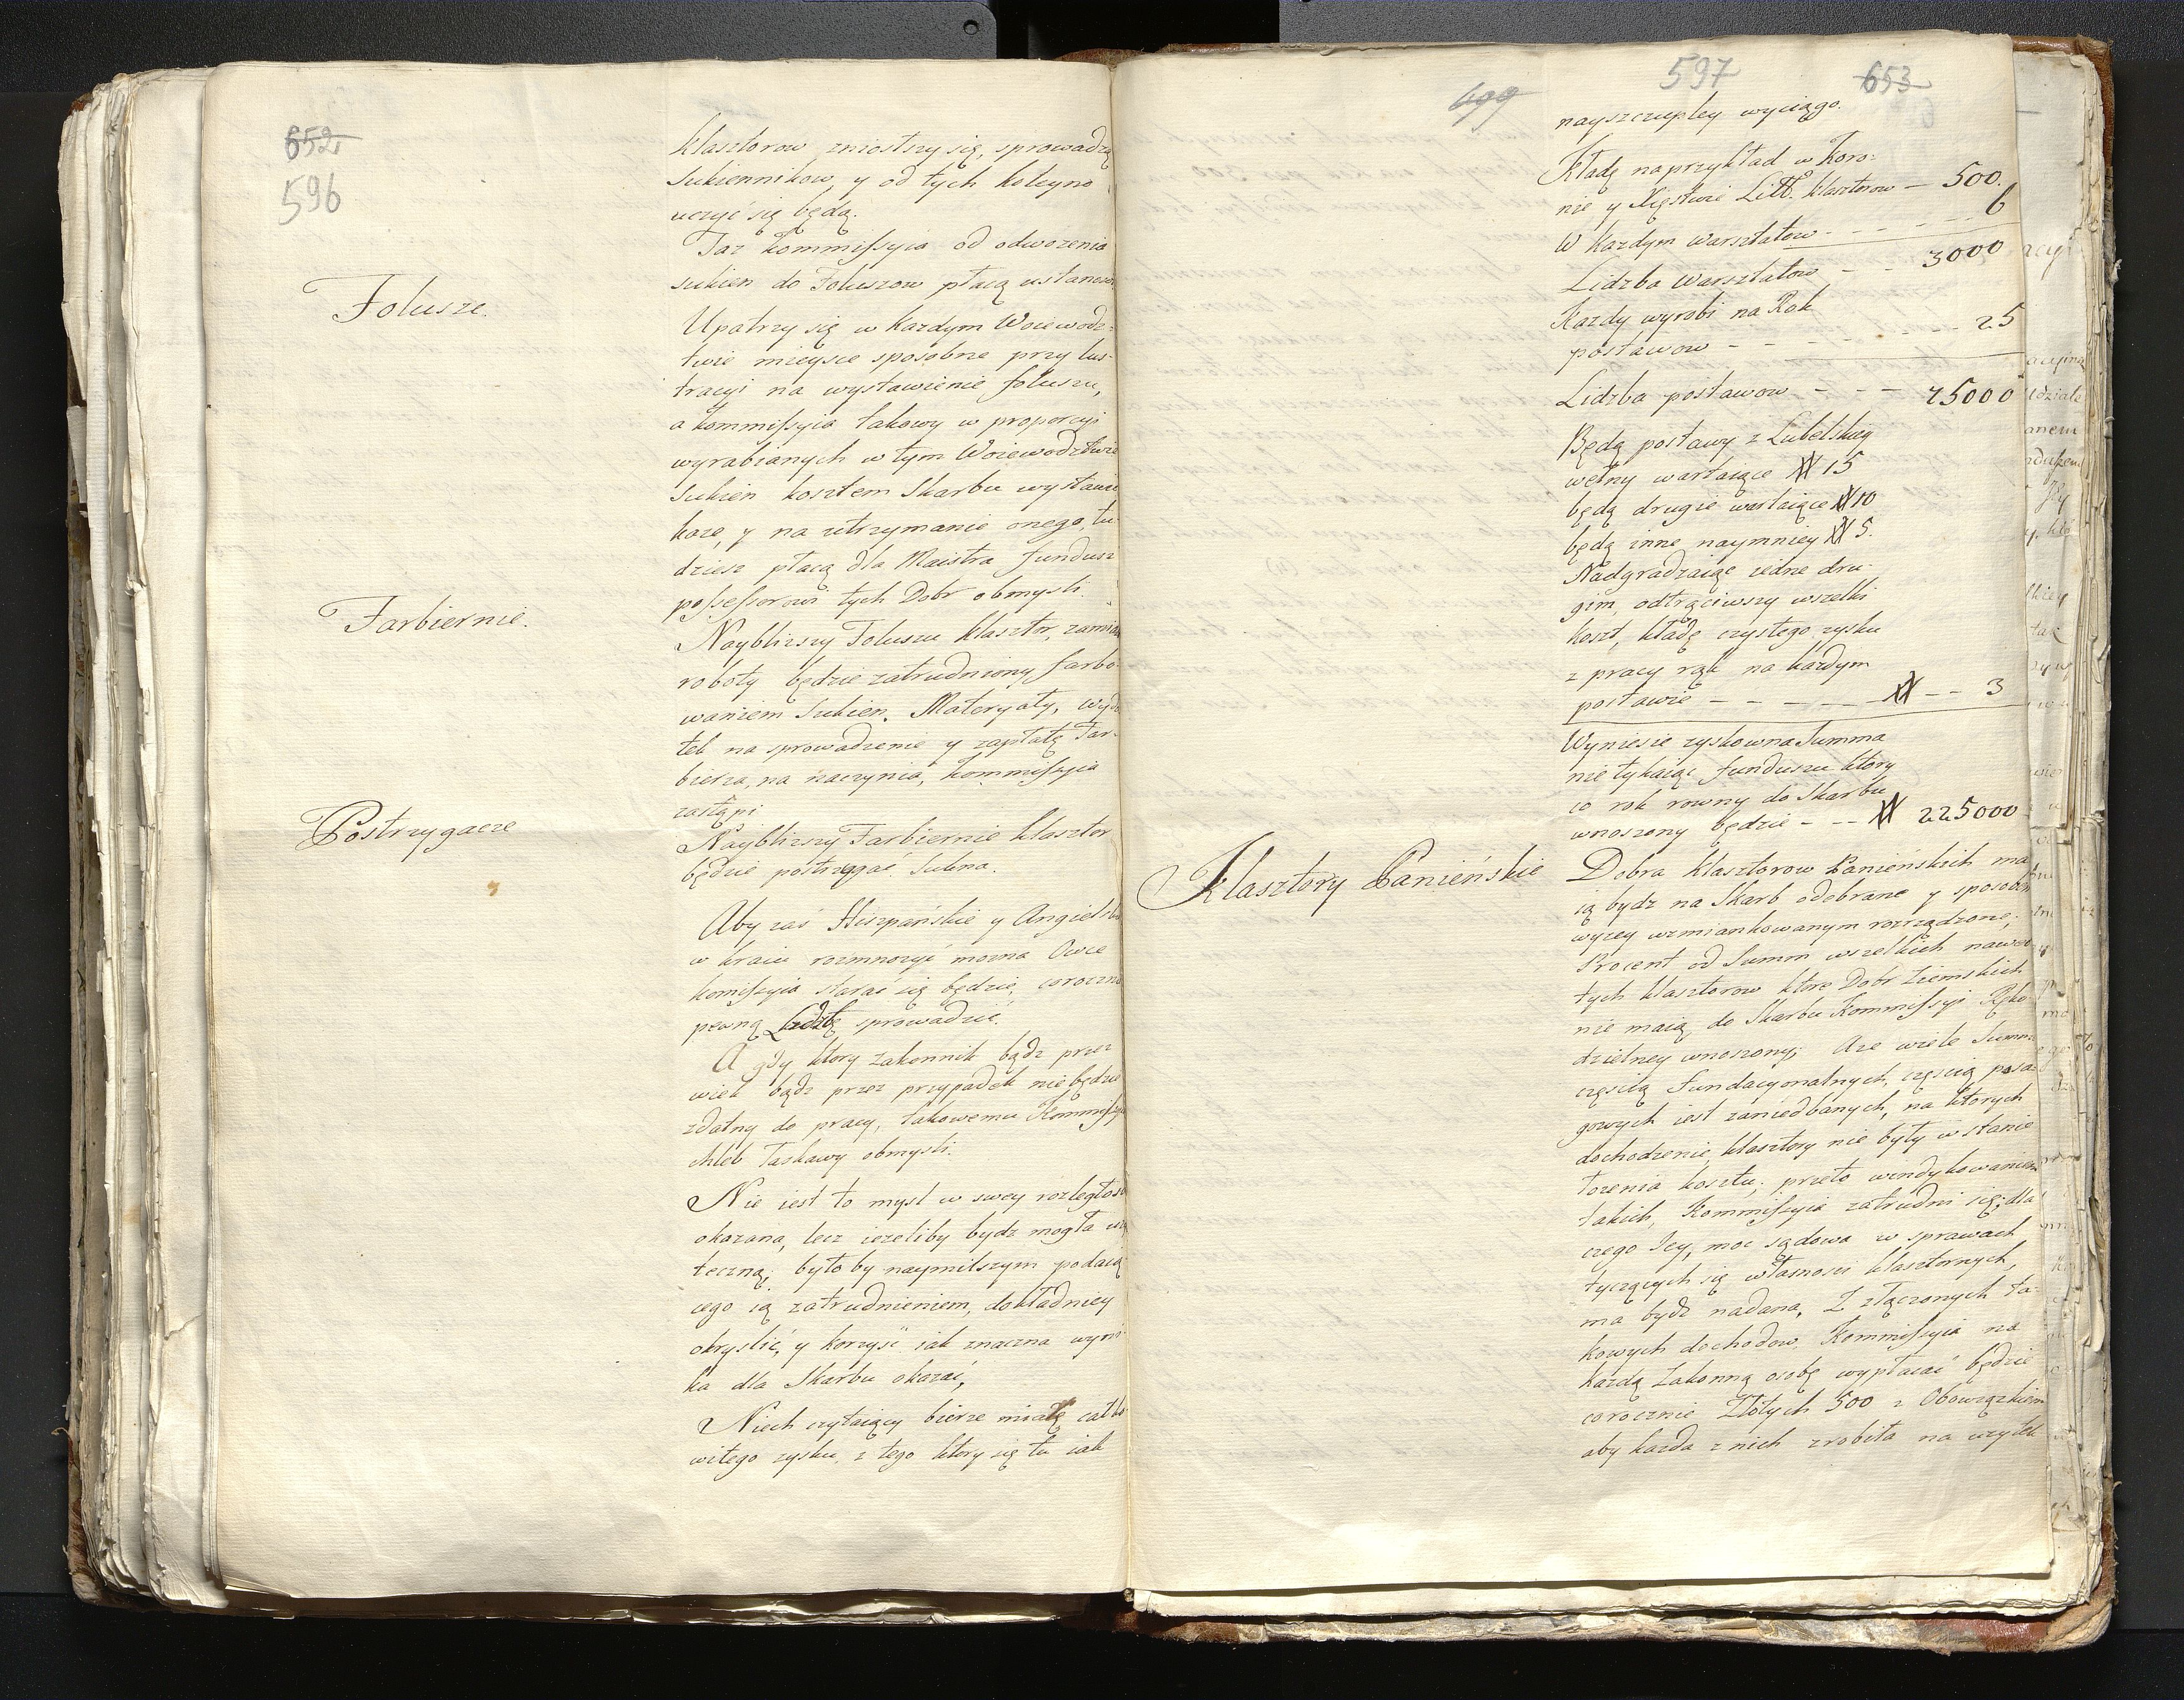 652
596
klasztorow zniosłszy się, sprowadzą
Sukiennikow, y od tych koleyno
uczyć się będą.
Taz Kommissyia od odwozenia
sukien do Foluszow płacą ustanowi
Folusze.
Upatrzy się w kazdym Woiewodz-
twie mieysce sposobne przy lus-
tracyi na wystawienie foluszu,
a Kommissyia takowy w proporcyi
wyrabianych w tym Woiewodztwie
Sukien kosztem Skarbu wystawić
kaze, y na utrzymanie onego, tu-
dziesz płacą dla Maistra fundusz
possessorowi tych Dobr obmysli.
Farbiernie.
Naybliższy Foluszu klasztor, zamiast
roboty będzie zatrudniony farbo-
waniem Sukien. Materyały, wyda-
tek na sprowadzenie y zapłatę Far-
bierza, na naczynia, Kommissyia
zastąpi
Postrzygacze
Naybliższy Farbiernie klasztor
będzie postrzygać Sukna.
Aby zaś Hiszpańskie y Angielskie
w kraiu rozmnozyć mozna Owce
komissyia starać się będzie, coroczno
pewną Lidzbę sprowadzić.
A gdy ktory zakonnik bądz przez
wiek bądz przez przypadek nie będzie
zdatny do pracy, takowemu Kommissyia
chleb łaskawy obmysli.
Nie iest to mysl w swey rozległosci
okazana, lecz iezeliby bydz mogła uży
teczną; byłoby naymilszym podaią
cego ią zatrudnieniem, dokładniey
okryslić, y korzyść iak znaczna wyni
ka dla Skarbu okazać,
Niech czytaiący bierze miarę całko
witego zysku, z tego ktory się tu iak
699
597
653
nayszczupley wyciągo.
Kładę naprzykład w Koro-
nie y Xięstwie Litt. klasztorow — 500.
W kazdym warsztatow - - - - - 6
Lidzba Warsztatow - - 3000
Kazdy wyrobi na Rok
postawow - - - - - - - 25
Lidzba postawow - - - 75000
Będą postawy z Lubelskiey
wełny wartaiące # 15
będą drugie wartaiące # 10
będą inne naymniey # 5.
Nadgradzaiąc iedne dru-
gim, odtrąciwszy wszelki
koszt, kładę czystego zysku
z pracy rąk na kazdym
postawie - - - - - - # - - 3
Wyniesie zyskowna Summa
nie tykaiąc funduszu ktory
co rok rowny do Skarbu
wnoszony będzie - - - # 225000
Klasztory Panieńskie
Dobra klasztorow Panieńskich ma
ią bydz na Skarb odebrane y sposobem
wyzey wzmiankowanym rozrządzone;
Procent od Summ wszelkich nawet
tych klasztorow ktore Dobr Ziemskich
nie maią, do Skarbu Kommissyi Ręko
dzielney wnoszony; Aze wiele Summ
częscią fundacyonalnych, częscią posa-
gowych iest zaniedbanych, na ktorych
dochodzenie, klasztory nie były w stanie
łozenia kosztu; przeto windykowaniem
takich, Kommissyia zatrudni się; dla
czego Jey, moc sądowa w sprawach
tyczących się własnosci klasztornych,
ma bydz nadana. Z złączonych ta-
kowych dochodow, Kommissyia na
kazdą Zakonną osobę wypłacać będzie
corocznie Złotych 500 z Obowiązkiem
aby kazda z nich zrobiła na uzytek